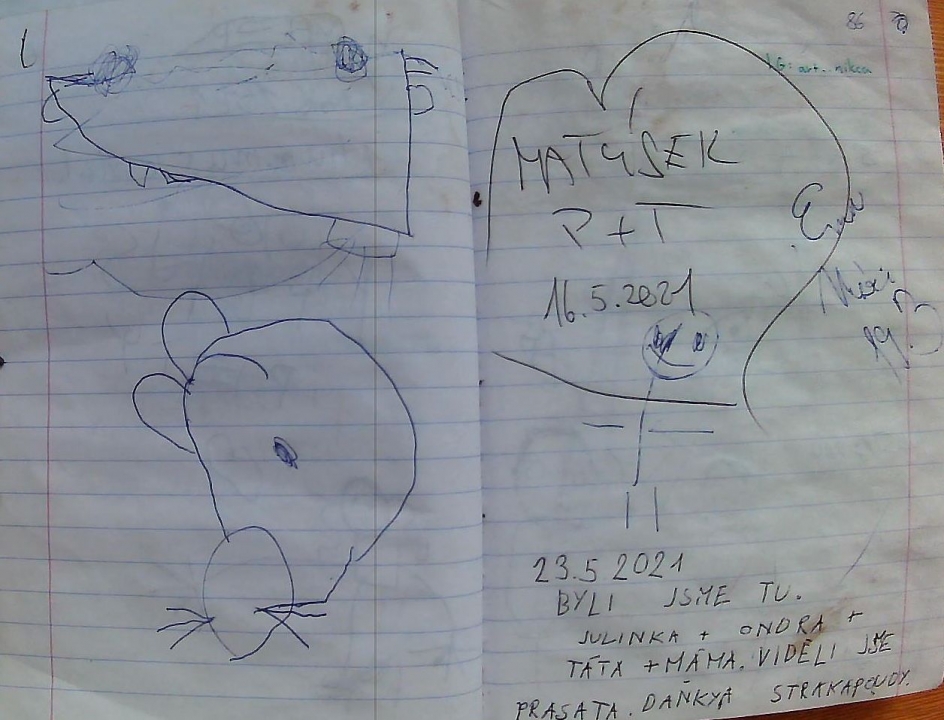 86
IG: art_nikca
MATÝSEK
P+T
Ema
16.5.2021
23.5 2021
BYLI JSME TU.
JULINKA + ONDRA +
TÁTA + MÁMA. VIDĚLI JSME
PRASATA. DAŇKYA STRAKAPOUDY.